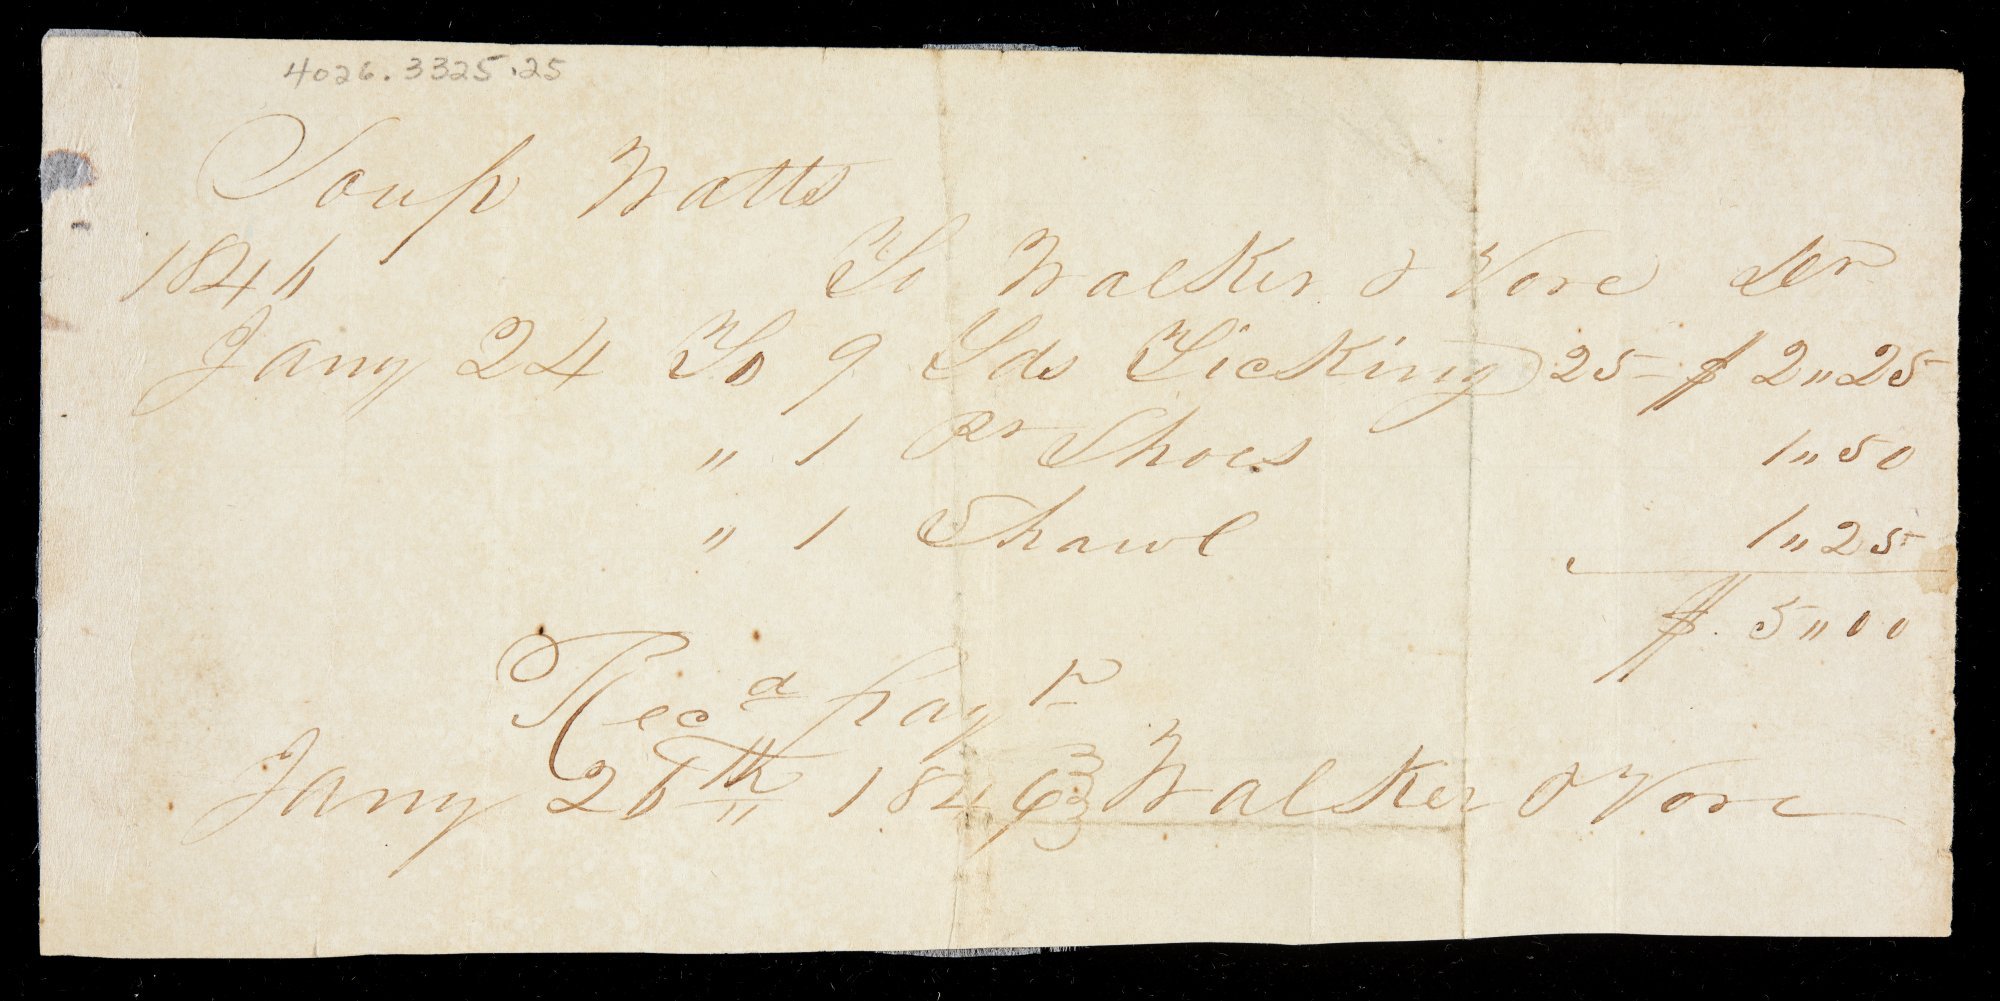 4026.3325.25
Soup Watts
1846 To Walker & Vore Dr
Jany 24 To 9 Yds Ticking 25 - $ 2"25
" 1 Pr Shoes 1"50
" 1 Shawl 1"25
$ 5"00
Recd payt
Jany 26th 1846 Walker & Vore